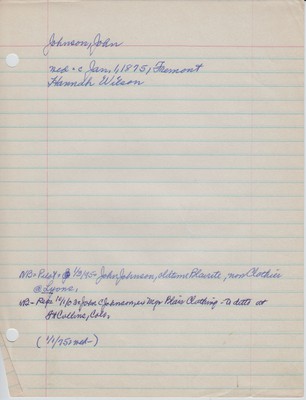 Johnson, John
med - c Jan, 1, 1875, Fremont
Hannah Wilson
NB - Pilot - 1/3/95 - John Johnson, oldtime Blairite, now Clothier
@ Lyons,
NB - Repe John C Johnson, ex Mgr Blair Clothing - to ditto at
Ft Collins, Colo,
(1/1/75 med -)